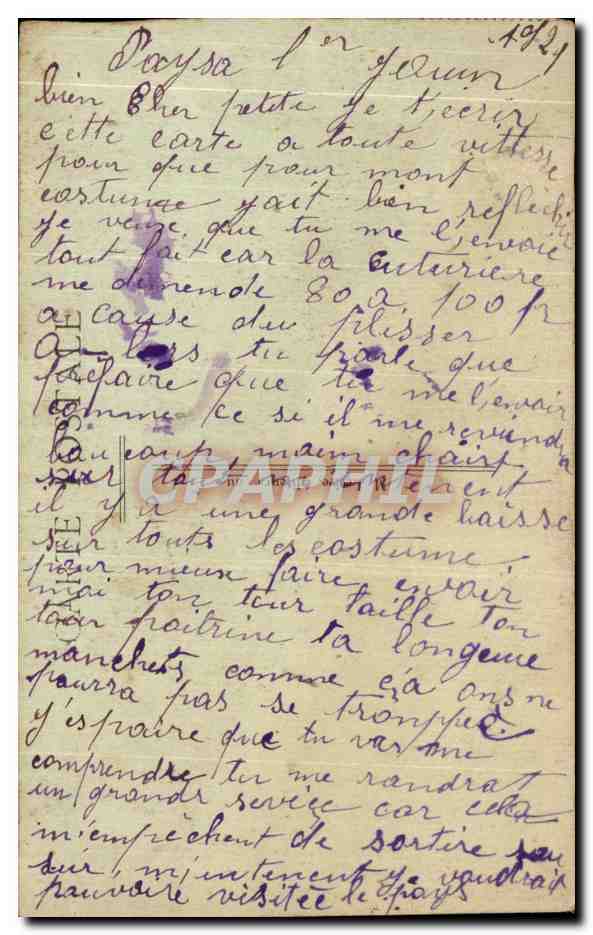 1921
Paysa 1er Jouin
bien Cher petite je t,ecrir
cette carte a toute vittesse
pour que pour mont
costume jait bien reflechir
je veux que tu me l,envoie
tout fait car la cuturiere
me demende 80 a 100 fr
a cause du plisser
a-lors tu parle que
prefaire que tu me l,envoir
comme ce si il me reviendra
baucoup moim chairt
sur tout m,intenent
il y a une grande baisse
sur touts les costume,
pour mieux faire envoir
moi ton tour taille ton
tour poitrine ta longeure
manchets comme c'a ons ne
pourra pas se tromper.
j'espaire que tu vas me
comprendre tu me randrat
un grands sevice car cela
m'empêchent de sortire
sur, m,intenent je vaudrait
pauvoire visitée le pays
CARTE POSTALE
CPAPHIL